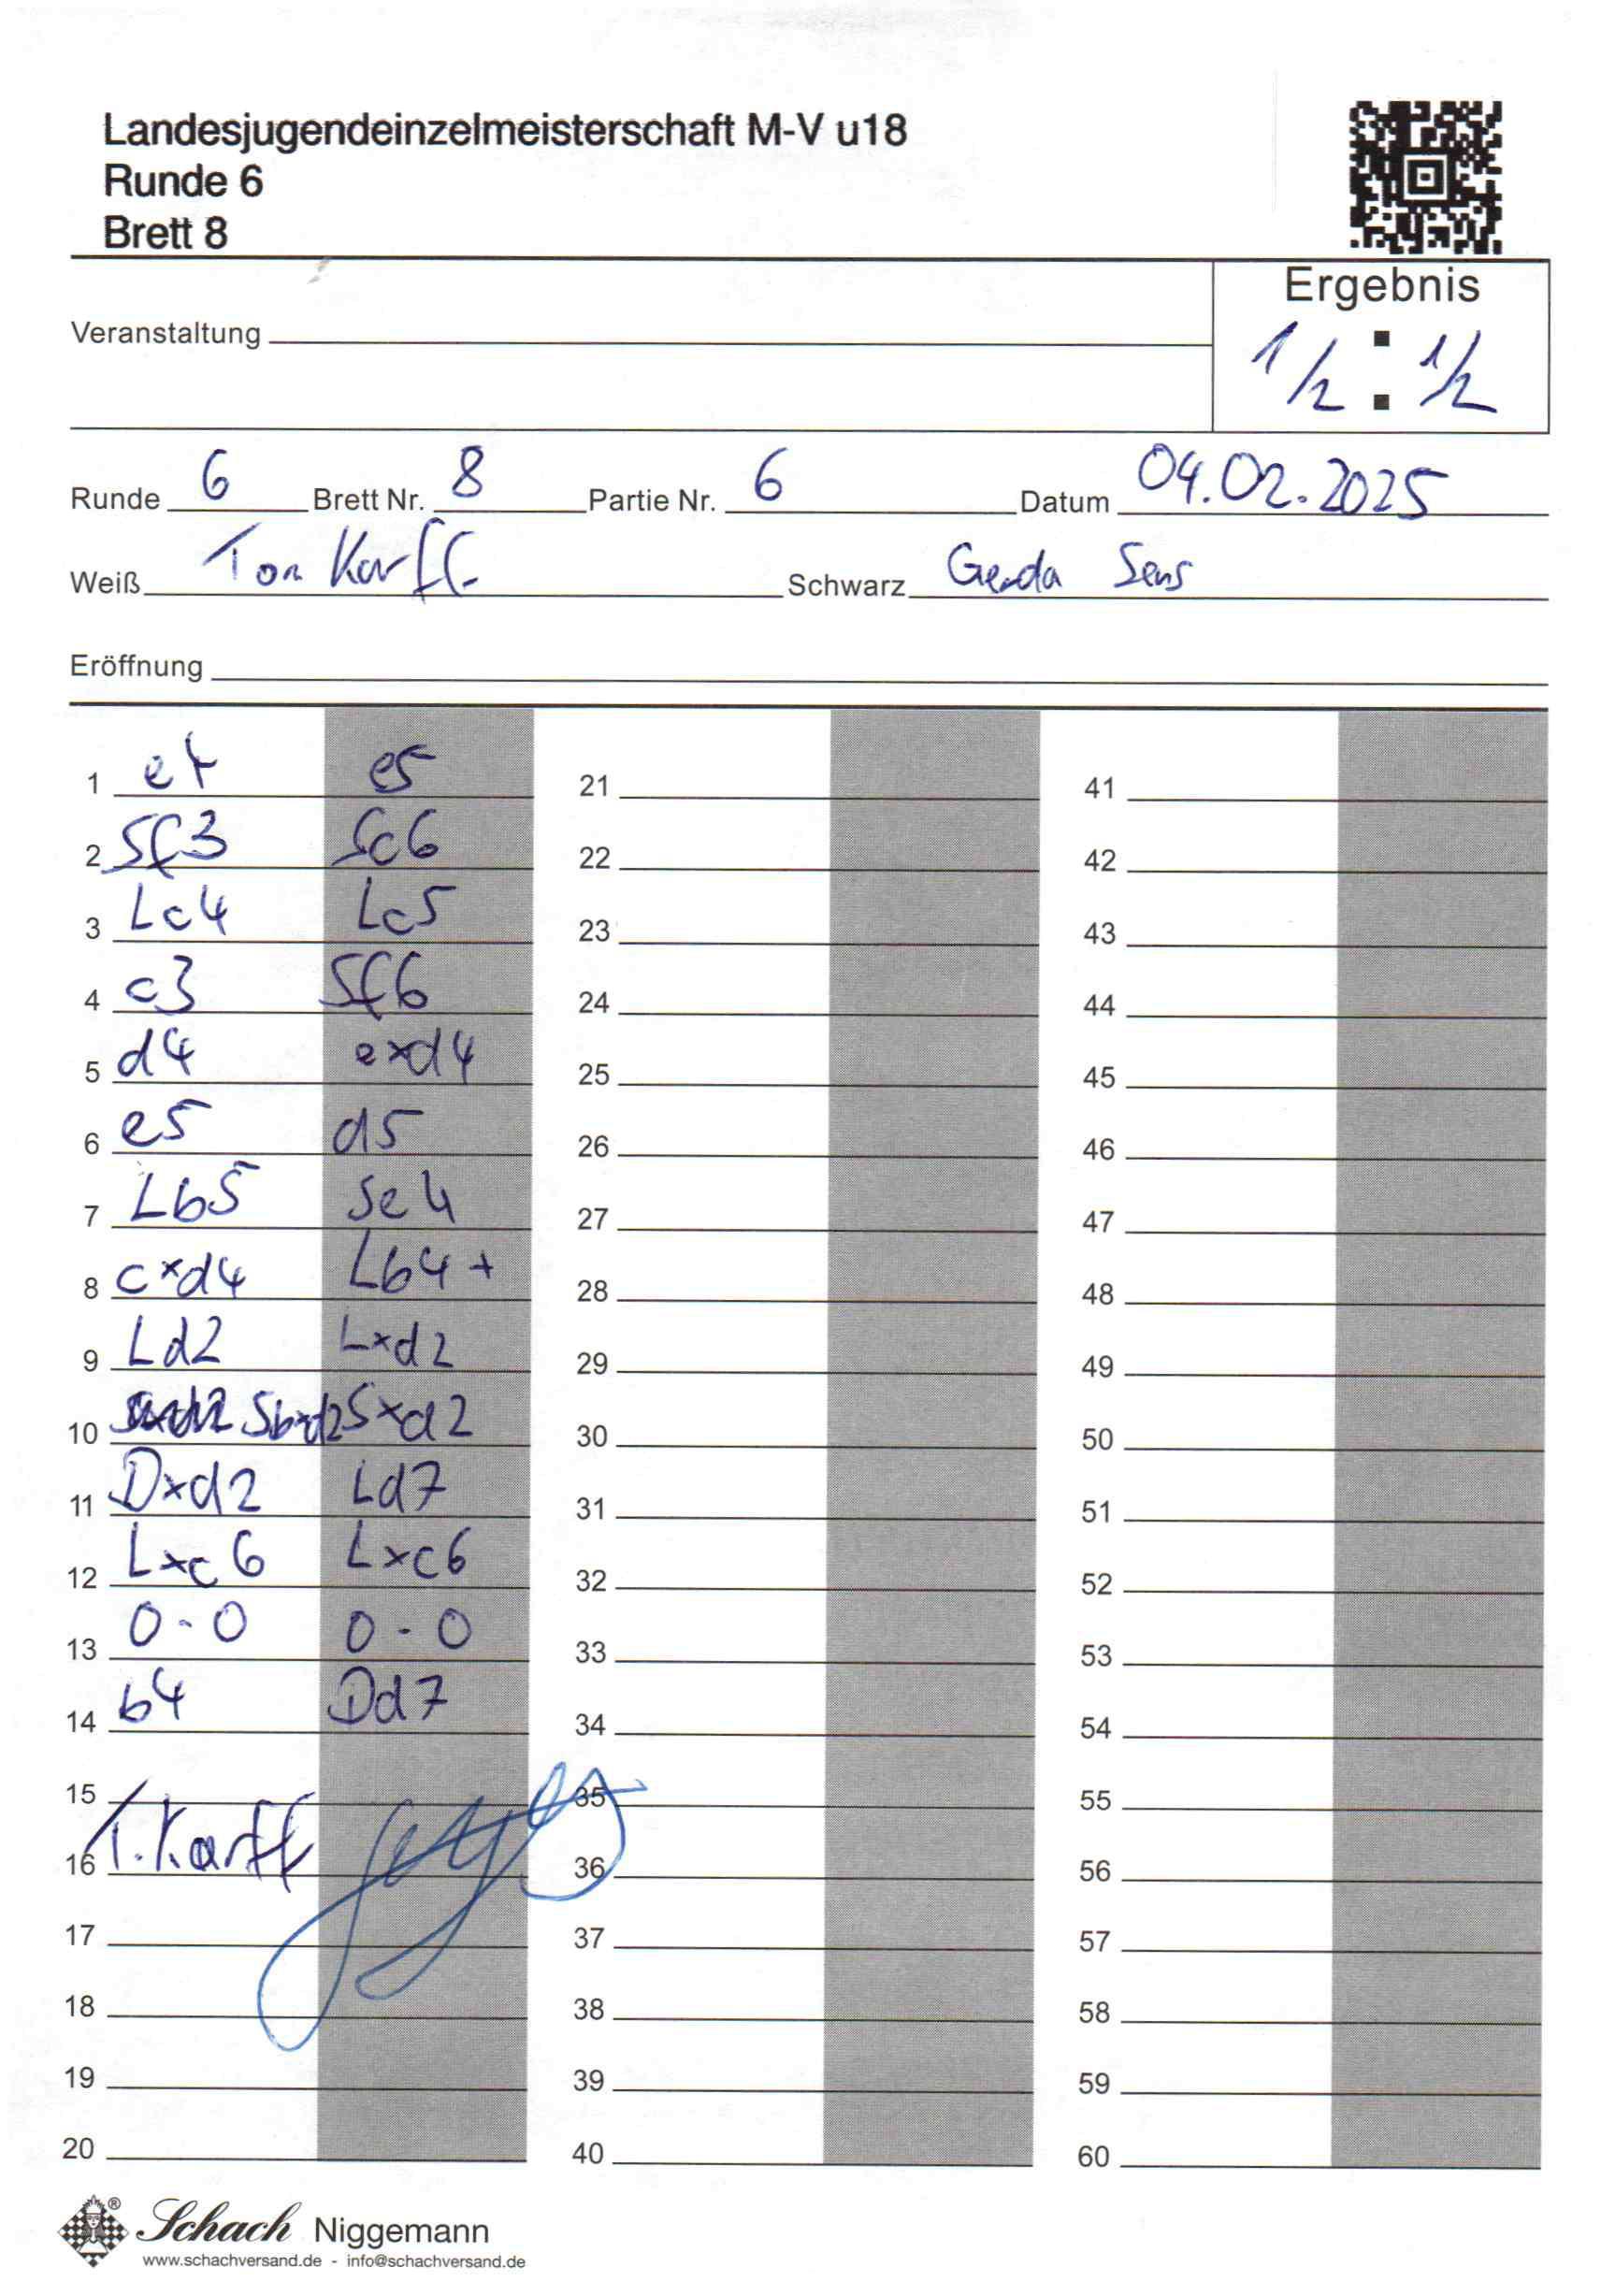 Landesjugendeinzelmeisterschaft M-V u18
Runde 6
Brett 8
Ergebnis
1/2 : 1/2
Veranstaltung
Runde 6 Brett Nr. 8 Partie Nr. 6 Datum 04.02.2025
Weiß Tom Karff Schwarz Gerda Sens
Eröffnung
1 e4 e5 21 41
2 Sf3 Sc6 22 42
3 Lc4 Lc5 23 43
4 c3 Sf6 24 44
5 d4 exd4 25 45
6 e5 d5 26 46
7 Lb5 Se4 27 47
8 cxd4 Lb4+ 28 48
9 Ld2 Lxd2 29 49
10 Sbxd2 Sxd2 30 50
11 Dxd2 Ld7 31 51
12 Lxc6 Lxc6 32 52
13 0-0 0-0 33 53
14 b4 Dd7 34 54
15 35 55
T. Karff
16 36 56
17 37 57
18 38 58
19 39 59
20 40 60
® Schach Niggemann
www.schachversand.de - info@schachversand.de